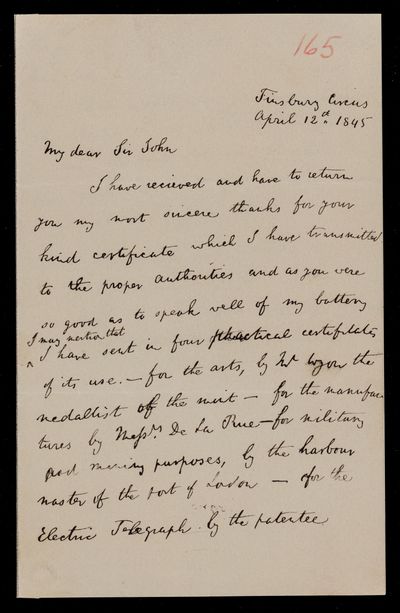 165
Finsbury Circus
April 12th 1845
My dear Sir John
I have recieved and have to return
you my most sincere thanks for your
kind certificate which I have transmitted
to the proper authorities and as you were
so good as to speak well of my battery
I may mention that
^ I have sent in four practical certificates
of its use. — for the arts, by Mr Wyon the
medallist of the mint — for the manufac
tures by Messrs. De La Rue — for military
and mining purposes, by the harbour
master of the port of London — for the
Electric Telegraph by the patentee